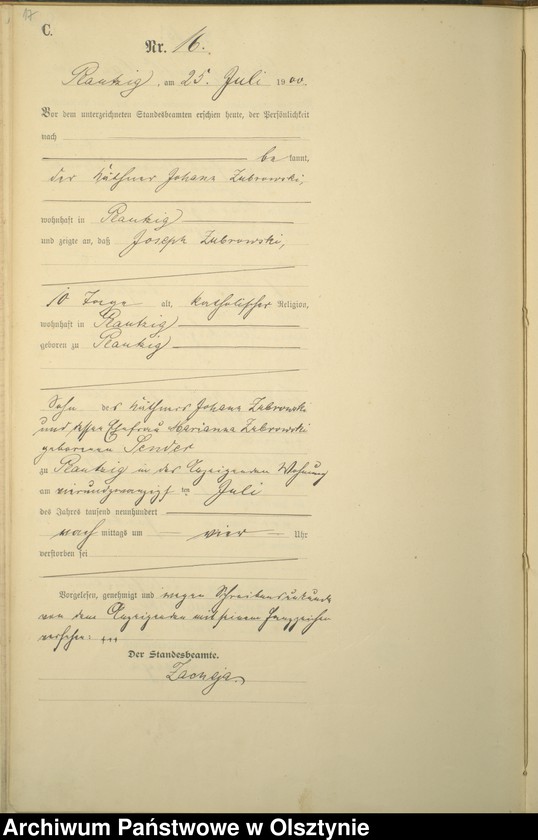 17
C.
Nr. 16.
Rantzig, am 25. Juli 1900.
Vor dem unterzeichneten Standesbeamten erschien heute, der Persönlichkeit
nach
be kannt,
der Käthner Johann Zabrowski,
wohnhaft in Rantzig
und zeigte an, daß Joseph Zabrowski,
10 Tage alt, katholischer Religion,
wohnhaft in Rantzig
geboren zu Rantzig
Sohn des Käthners Johann Zabrowski
und dessen Ehefrau Marianna Zabrowski
geborenen Sender
zu Rantzig in des Anzeigenden Wohnung
am vierundzwanzigsten Juli
des Jahres tausend neunhundert
nach mittags um vier Uhr
verstorben sei
Vorgelesen, genehmigt und wegen Schreibensunkunde
von dem Anzeigenden mit seinem Handzeichen
versehen: +++
Der Standesbeamte.
Archiwum Państwowe w Olsztynie